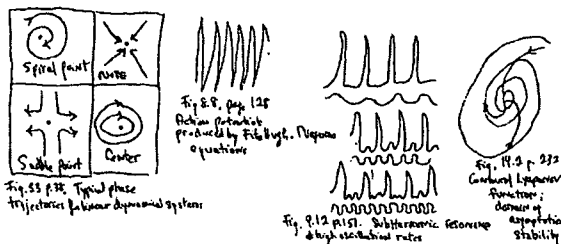 Spiral point
Node
Saddle Point
Center
Fig. 3.3 p. 38, Typical phase
trajectories for linear dynamical systems
Fig 8.8, page 128
Action potential
produced by FitzHugh-Nagumo
equations
Fig. 9.12 p.151. Subharmonic resonance
at high oscillation rates
Fig. 14.2 p. 232
Contours of Lyapunov
function;
domain of
asymptotic
stability